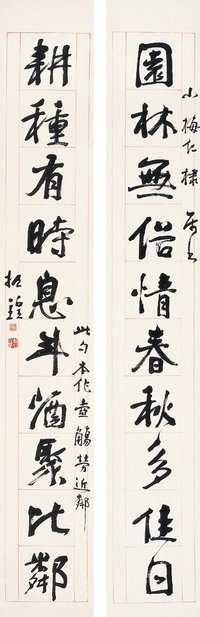 園林無俗情春秋多佳日
小梅仁棣
耕種有時息斗酒聚比鄰
此句本作壺觴勞近鄰
振鍠